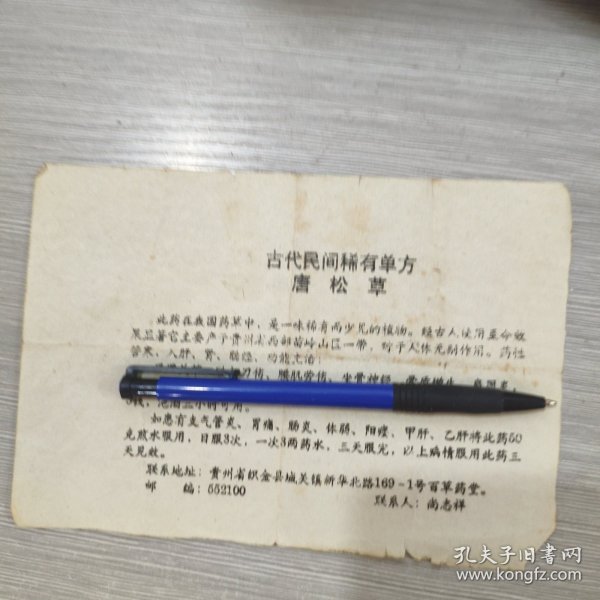 古代民间稀有单方
唐松草
此药在我国药草中，是一味稀有而少见的植物。经古人使用至今效
果显著它主要产于贵州省西部苗岭山区一带，对于人体无副作用。药性
苦寒，入肝、胃、肠经，功能主治：
刀伤，腰肌劳伤，坐骨神经，骨质增生，
泡酒三小时可用。
如患有支气管炎、胃痛、肠炎、体弱、阳痿、甲肝、乙肝将此药50
克煎水服用，日服3次，一次3两药水，三天服完，以上病情服用此药三
天见效。
联系地址：贵州省织金县城关镇新华北路169-1号百草药堂。
邮 编：552100 联系人：尚志祥
孔夫子旧书网
www.kongfz.com